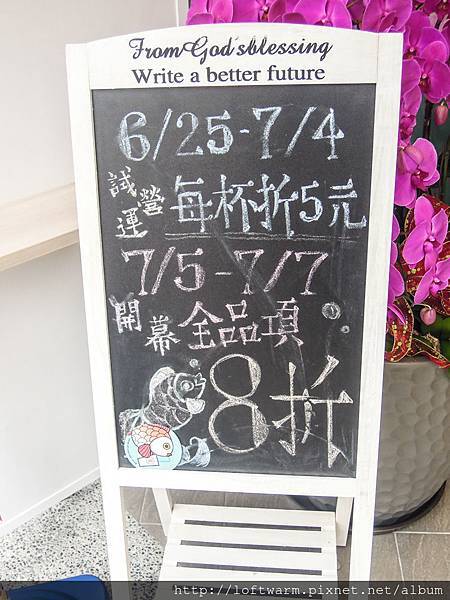 From God's blessing
Write a better future
6/25-7/4
試營運 每杯折5元
7/5-7/7
開幕 全品項
8折
http://loftwarm.pixnet.net/album